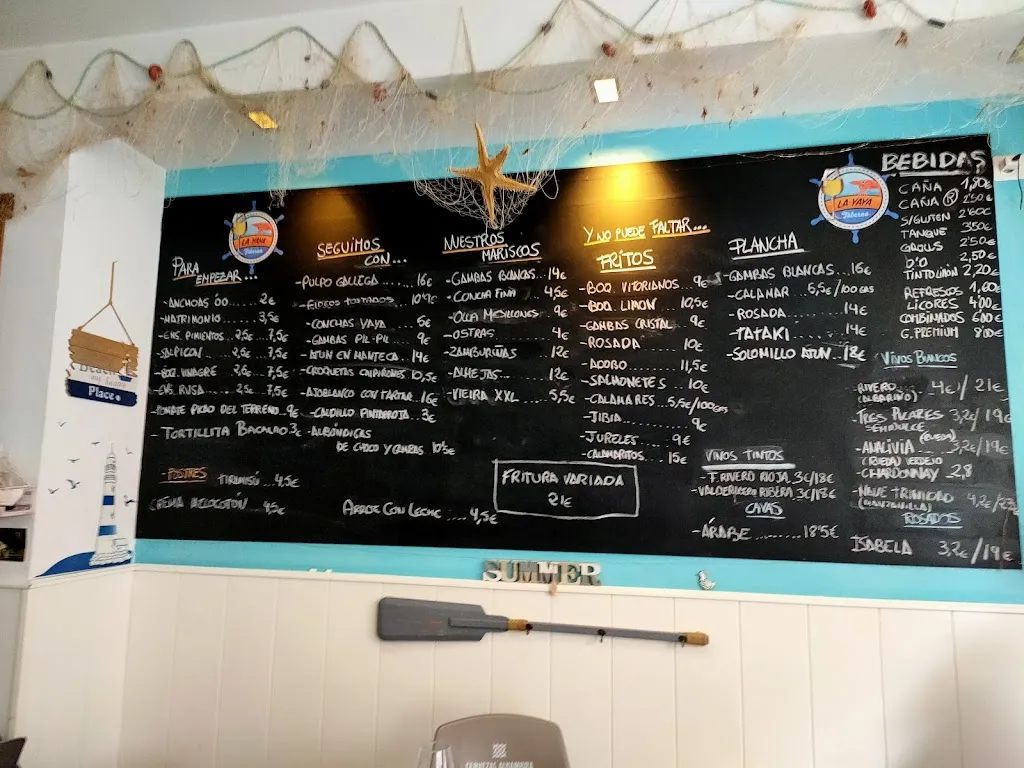 PARA
EMPEZAR...
-ANCHOAS 00..... 2€
-MATRIMONIO ..... 3,5€
-ENS. PIMIENTOS. 2,5€ 7,5€
-SALPICON ..... 2,5€ 7,5€
-BOQ. VINAGRE 2,5€ 7,5€
-ENS. RUSA..... 2,5€ 7,5€
-TOMATE PICAO DEL TERRENO. 9€
-TORTILLITA BACALAO 3€
-POSTRES
TIRAMISÚ ..... 4,5€
CREMA MELOCOTÓN ..... 4,5€
LA YAYA
Taberna
SEGUIMOS
CON...
-PULPO GALLEGA ...... 16€
TOSTADOS
-CONCHAS YAYA ..... 5€
-GAMBAS PIL-PIL ... 9€
-ATUN EN MANTECA.... 14€
-CROQUETAS CHIPIRONES. 10,5€
-AJOBLANCO CON TARTAR 16€
-CALDILLO PINTARROJA.. 3€
-ALBÓNDIGAS
DE CHOCO Y GAMBAS 10'5€
ARROZ CON LECHE .... 4,5€
NUESTROS
MARISCOS
-GAMBAS BLANCAS... 14€
-CONCHA FINA ..... 4,5€
-OLLA MEJILLONES. 9€
-OSTRAS ........ 4€
-ZAMBURIÑAS ..... 12€
-ALMEJAS........ 12€
-VIEIRA XXL...... 5,5€
Y NO PUEDE FALTAR...
FRITOS
-BOQ. VITORIANOS... 9€
-BOQ. LIMON..... 10,5€
-GAMBAS CRISTAL. 9€
-ROSADA ....... 10€
ADOBO ........ 11,5€
-SALMONETES .. 10€
-CALAMARES .. 5,5€/100GRS
-JIBIA ......... 9€
-JURELES ...... 9€
-CALAMARITOS.... 15€
FRITURA VARIADA
21€
PLANCHA
-GAMBAS BLANCAS... 16€
-CALAMAR .... 5,5€/100 GRS
-ROSADA ....... 14€
-TATAKI ....... 14€
-SOLOMILLO ATUN.. 18€
VINOS TINTOS
-F. RIVERO RIOJA. 3€/18€
RIBERA 3€/18€
CAVAS
-ÁRABE .......... 18'5€
LA YAYA
Taberna
BEBIDAS
CAÑA 1,80€
CAÑA 2'50€
S/GLUTEN 2'60€
TANQUE 3'50€
2'50€
D'O 2,50€
TINTO LIMÓN 2,20€
REFRESCOS 1,80€
LICORES 4'00€
COMBINADOS 6'00€
G. PREMIUM 8'00€
VINOS BLANCOS
-RIVERO 4€/21€
(ALBARIÑO)
-TRES PILARES 3,2€/19€
SEMIDULCE
(RUEDA)
-ANALIVIA 3,2€/19€
(RUEDA) VERDEJO
-CHARDONNAY 2,8
-NAVE TRINIDAD
(MANZANILLA)
ROSADOS
ISABELA 3,2€/19€
Place
SUMMER
CERVEZAS ALHAMBRA